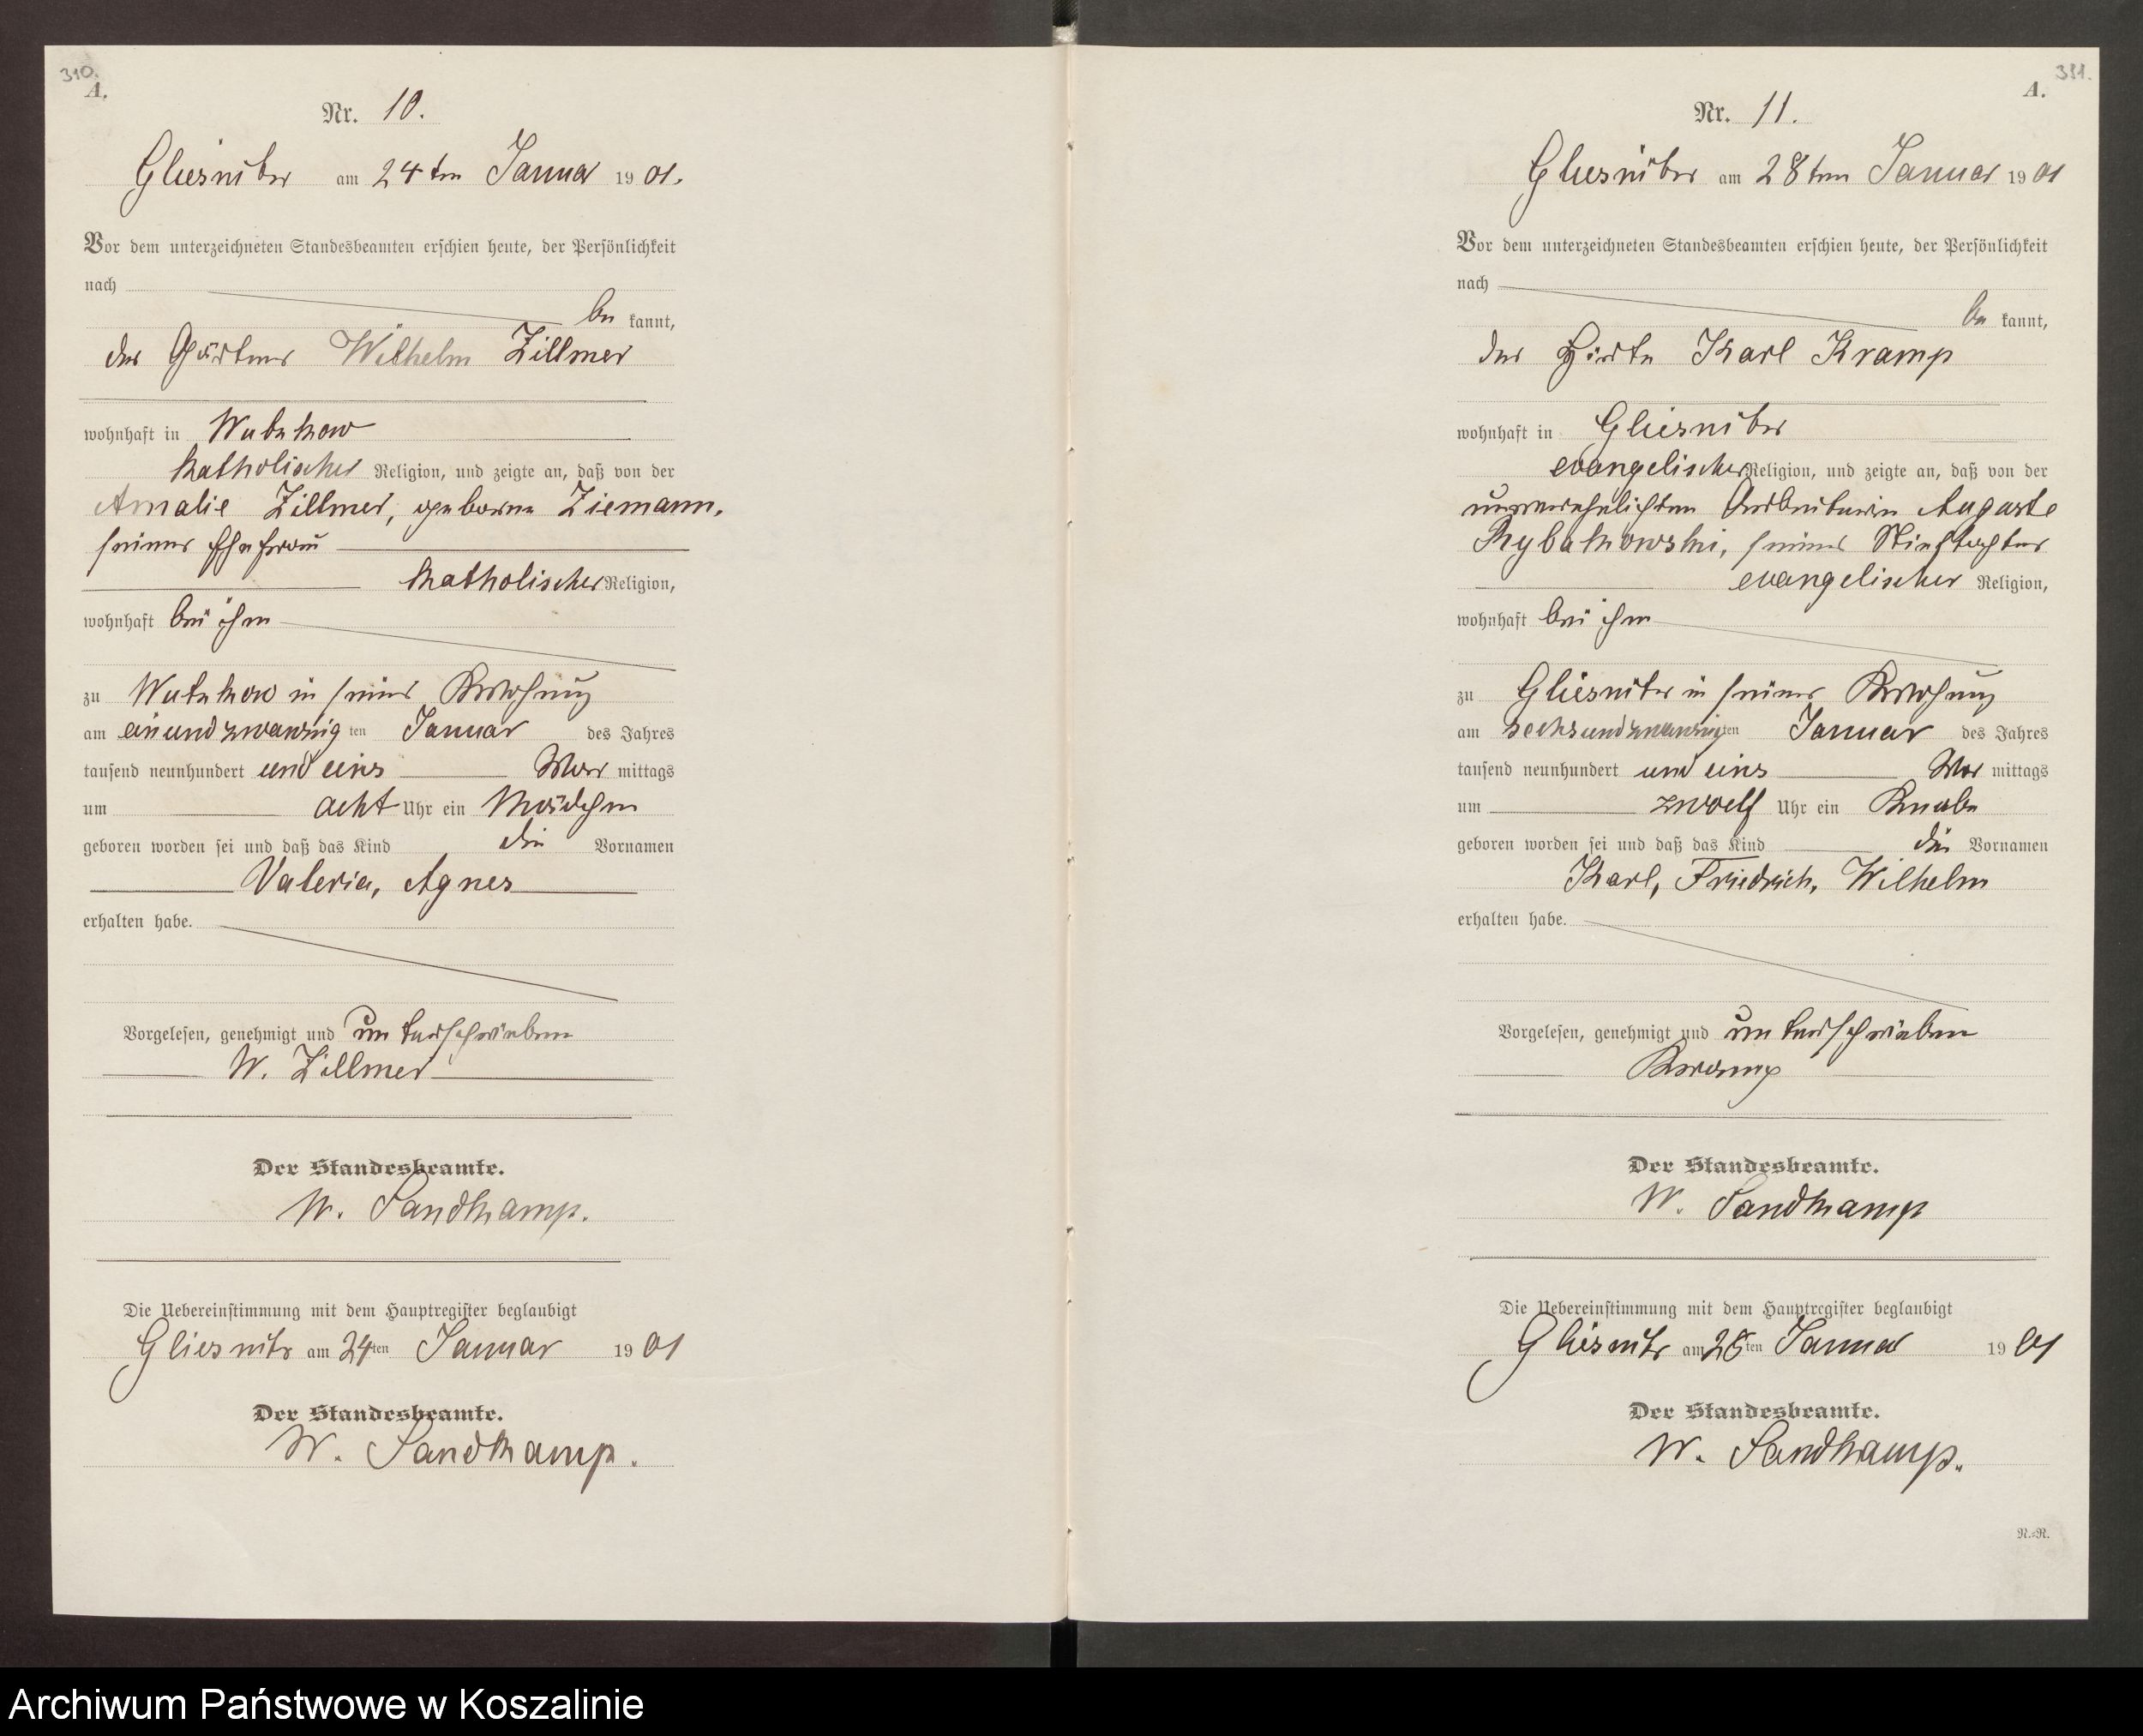 310.
A.
Nr. 10.
Gliesnitz am 24ten Januar 1901.
Vor dem unterzeichneten Standesbeamten erschien heute, der Persönlichkeit
nach
be kannt,
der Gärtner Wilhelm Zillmer
wohnhaft in Wutzkow
katholischer Religion, und zeigte an, daß von der
Amalie Zillmer, geborne Ziemann,
seiner Ehefrau
katholischer Religion,
wohnhaft bei ihm
zu Wutzkow in seiner Behausung
am einundzwanzig ten Januar des Jahres
tausend neunhundert und eins Vor mittags
um acht Uhr ein Mädchen
geboren worden sei und daß das Kind die Vornamen
Valeria, Agnes
erhalten habe.
Vorgelesen, genehmigt und unterschrieben
W. Zillmer
Der Standesbeamte.
W. Sandkamp.
Die Uebereinstimmung mit dem Hauptregister beglaubigt
Gliesnitz am 24ten Januar 1901
Der Standesbeamte.
W. Sandkamp.
311.
A.
Nr. 11.
Gliesnitz am 28ten Januar 1901
Vor dem unterzeichneten Standesbeamten erschien heute, der Persönlichkeit
nach
be kannt,
der Hirte Karl Kramp
wohnhaft in Gliesnitz
evangelischer Religion, und zeigte an, daß von der
unverehelichten Arbeiterin Auguste
Rybakowski, seiner Stieftochter
evangelischer Religion,
wohnhaft bei ihm
zu Gliesnitz in seiner Behausung
am sechsundzwanzigten Januar des Jahres
tausend neunhundert und eins Vor mittags
um zwoelf Uhr ein Knabe
geboren worden sei und daß das Kind die Vornamen
Karl, Friedrich, Wilhelm
erhalten habe.
Vorgelesen, genehmigt und unterschrieben
Kramp
Der Standesbeamte.
W. Sandkamp
Die Uebereinstimmung mit dem Hauptregister beglaubigt
Gliesnitz am 28ten Januar 1901
Der Standesbeamte.
W. Sandkamp.
N.=R.
Archiwum Państwowe w Koszalinie